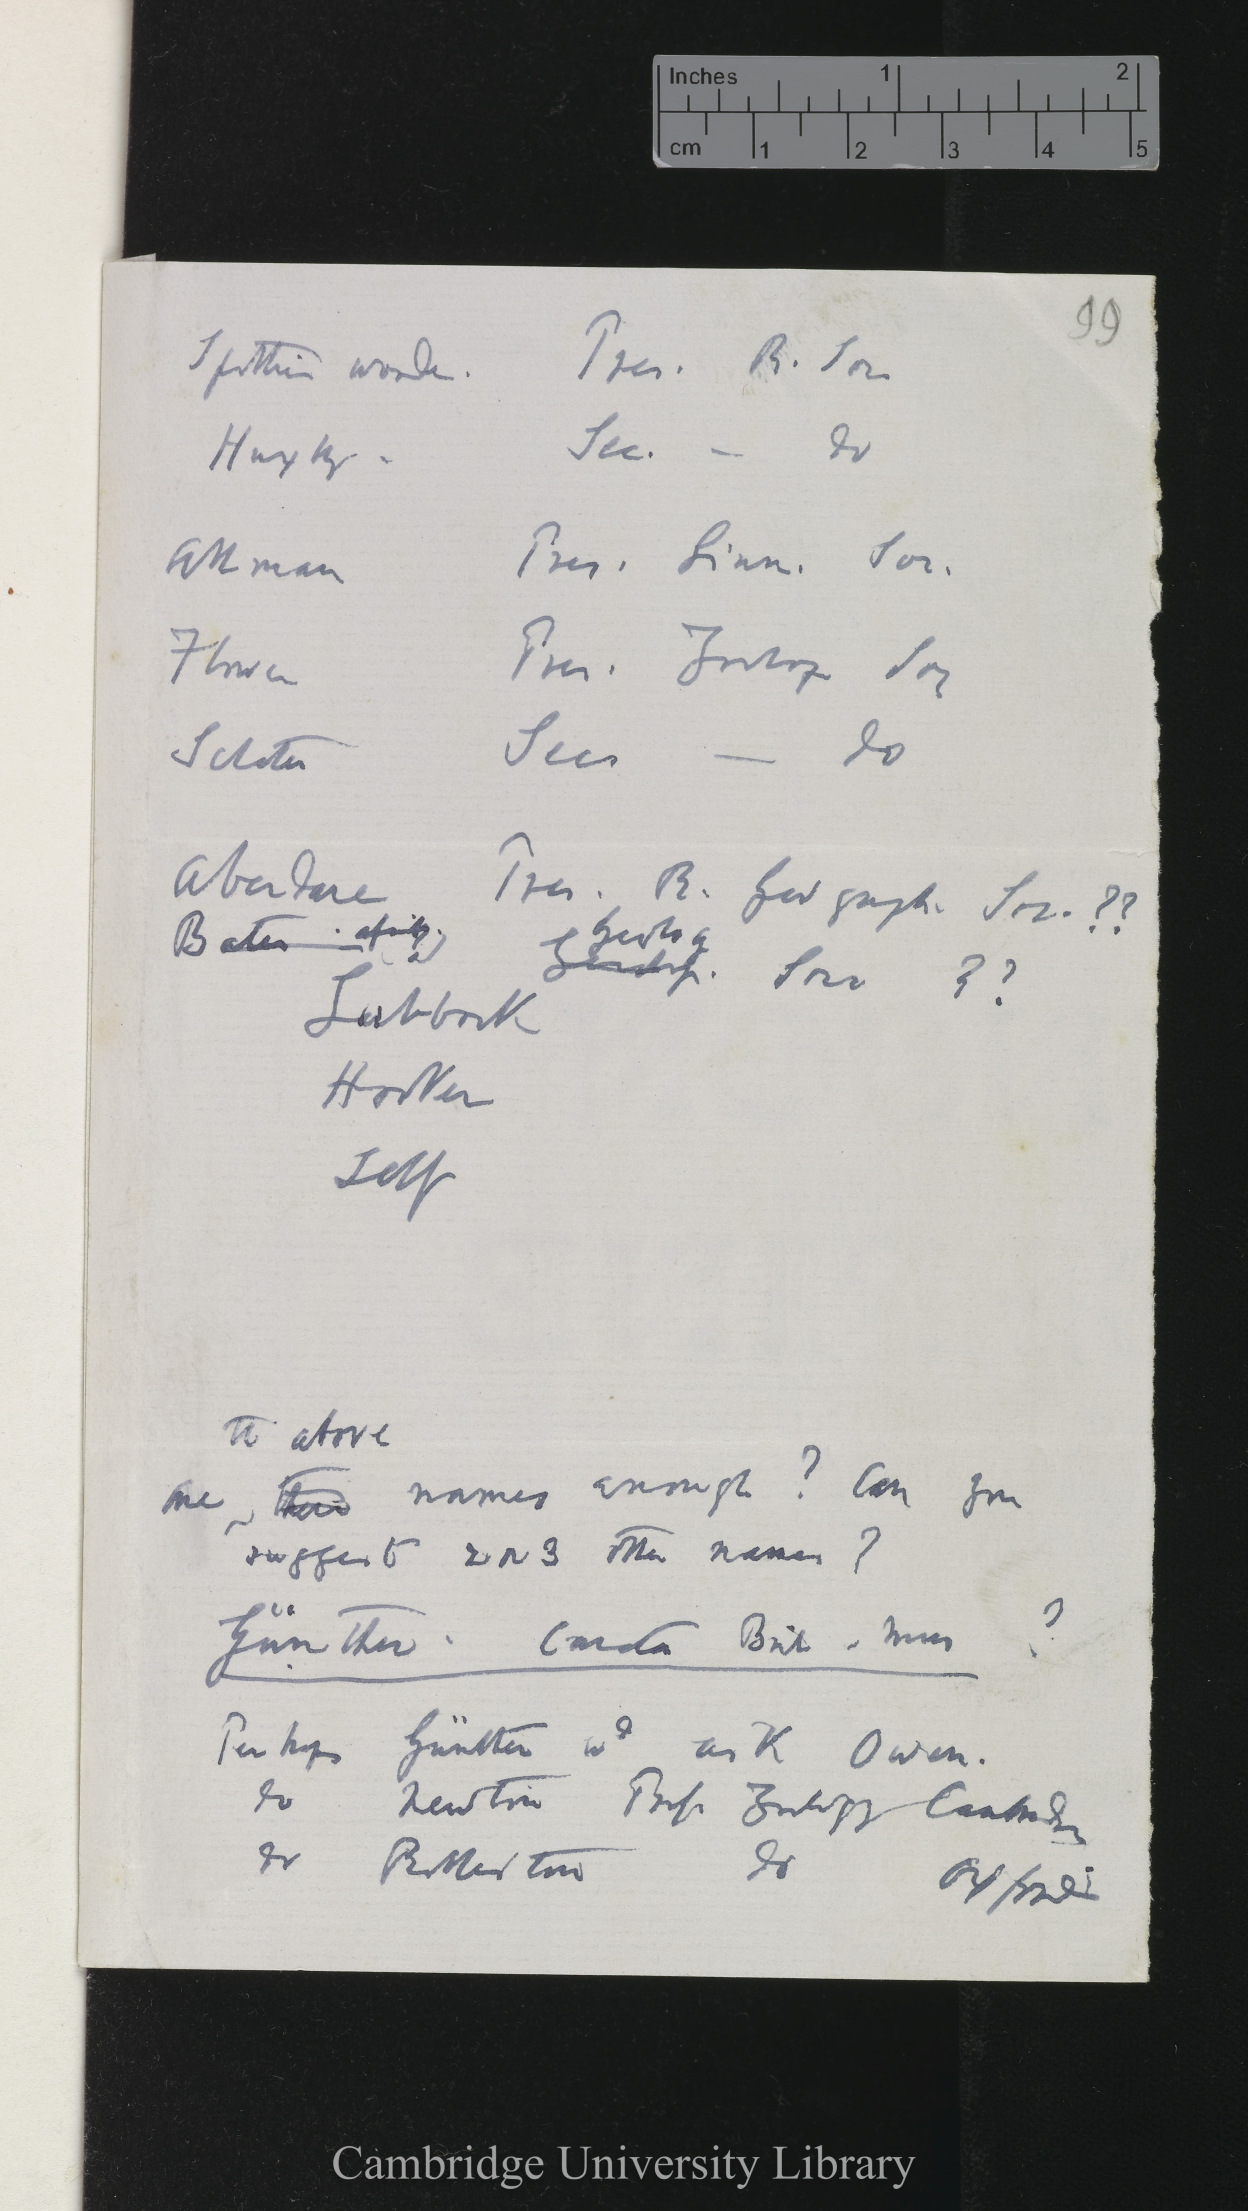 Inches 1 2
cm 1 2 3 4 5
99
Spottiswoode. Pres. R. Soc
Huxley. Sec. — do
Allman Pres. Linn. Soc.
Flower Pres. Zoolog Soc
Sclater Secr — do
Aberdare Pres. R. Geograph. Soc. ??
Geolog
Bates Soc ??
Lubbock
Hooker
Self
the above
Are these names enough? Can you
suggest 2 or 3 other names?
Günther. Curator Brit. Mus ?
Perhaps Günther wd ask Owen.
do Newton Prof. Zoology Cambridge
do Rolleston do Oxford
Cambridge University Library